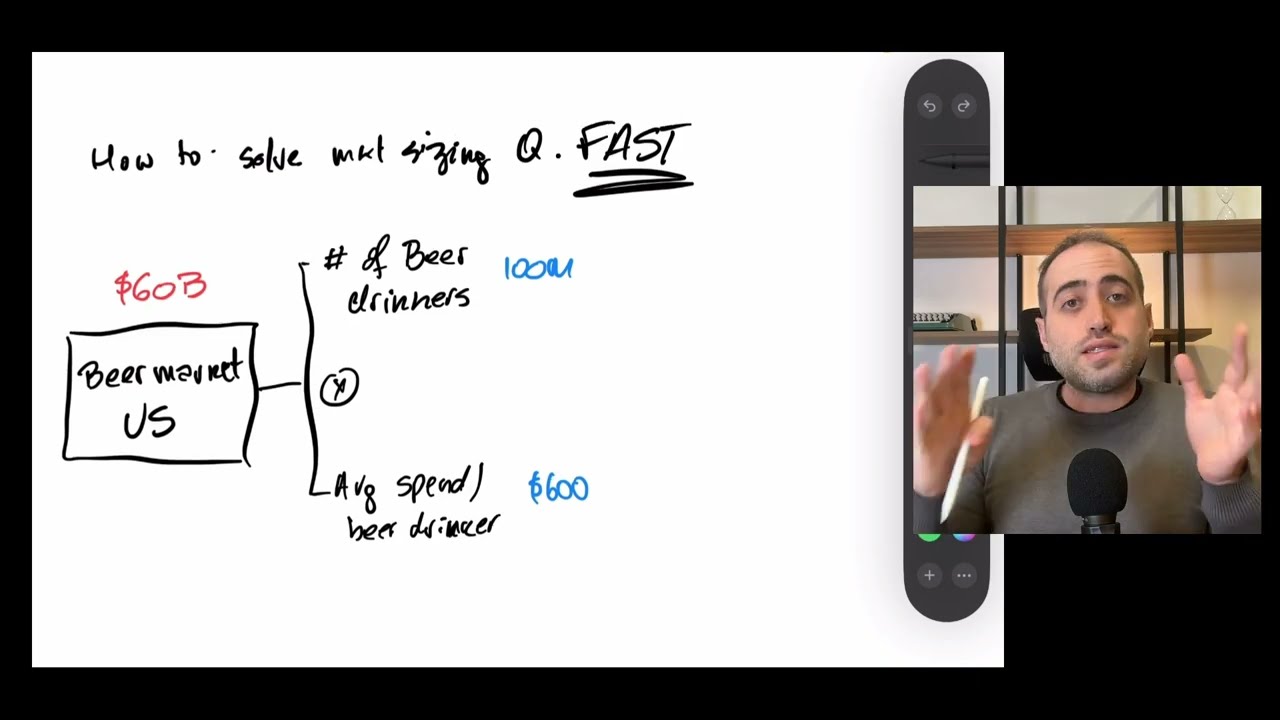 How to solve mkt sizing Q. FAST
$60B
Beer market
US
# of Beer
drinkers
100M
x
Avg spend/
beer drinker
$600